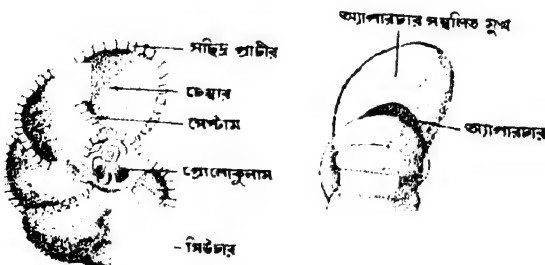 সছিদ্র প্রাচীর
চেম্বার
সেপ্টাম
প্রোলোকুলাস
সিউচার
অ্যাপারচার সম্বলিত মুখ
অ্যাপারচার